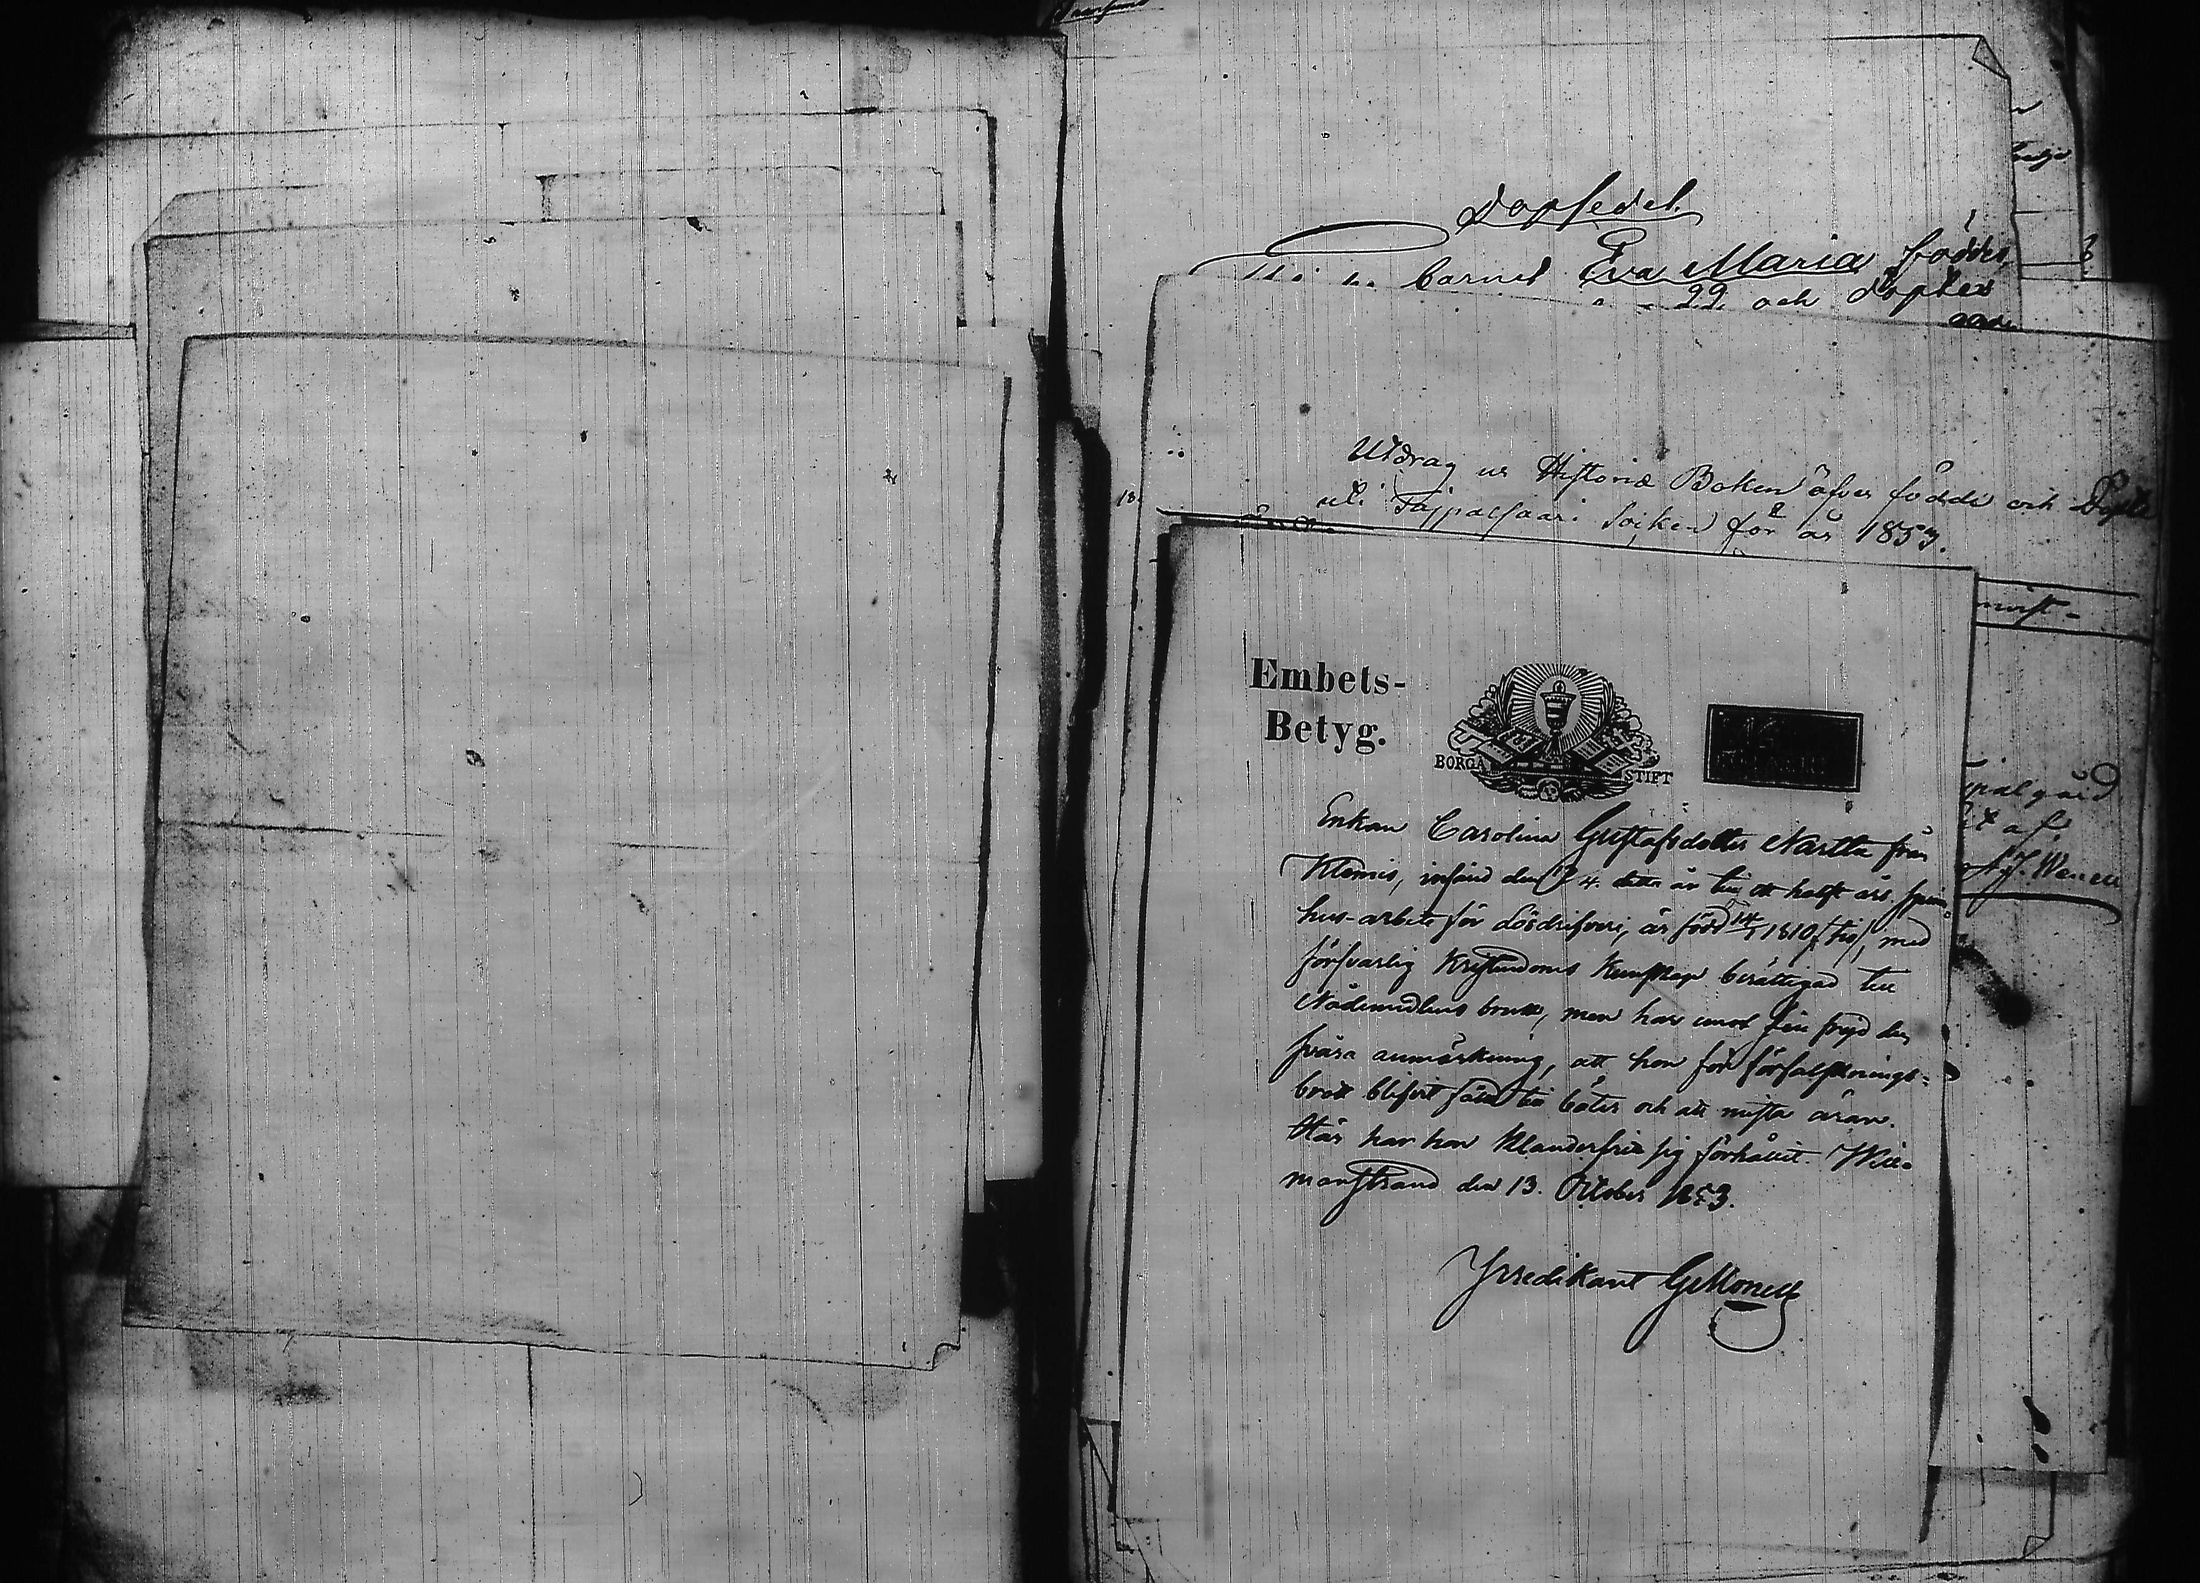 Dopsedel.
barnet Eva Maria föddes
22 och döptes
Utdrag ur Historie Boken öfver födde och Döpte
uti Taipalsaari Socken för år 1853.
Embets-
Betyg.
BORGÅ STIFT
Enkan Carolina Gustafsdotter Nartta från
Klemis, införd den 4. detta år till ett halft års spinn-
hus-arbete för lösdrifveri, är född 14/1 1810 /tio/, med
försvarlig Kristendoms Kunskap berättigad till
Nådemedlens bruk, men har emot sin frejd den
svåra anmärkning, att hon för förfalsknings-
brott blifvit fälld till böter och att mista äran.
Här har hon klanderfritt sig förhållit. Will-
manstrand den 13. October 1853.
Predikant